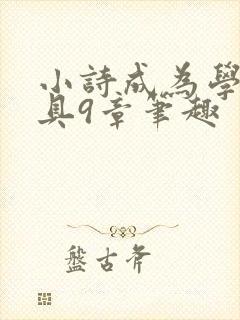 小詩成為學
具9章筆趣
盤古斧